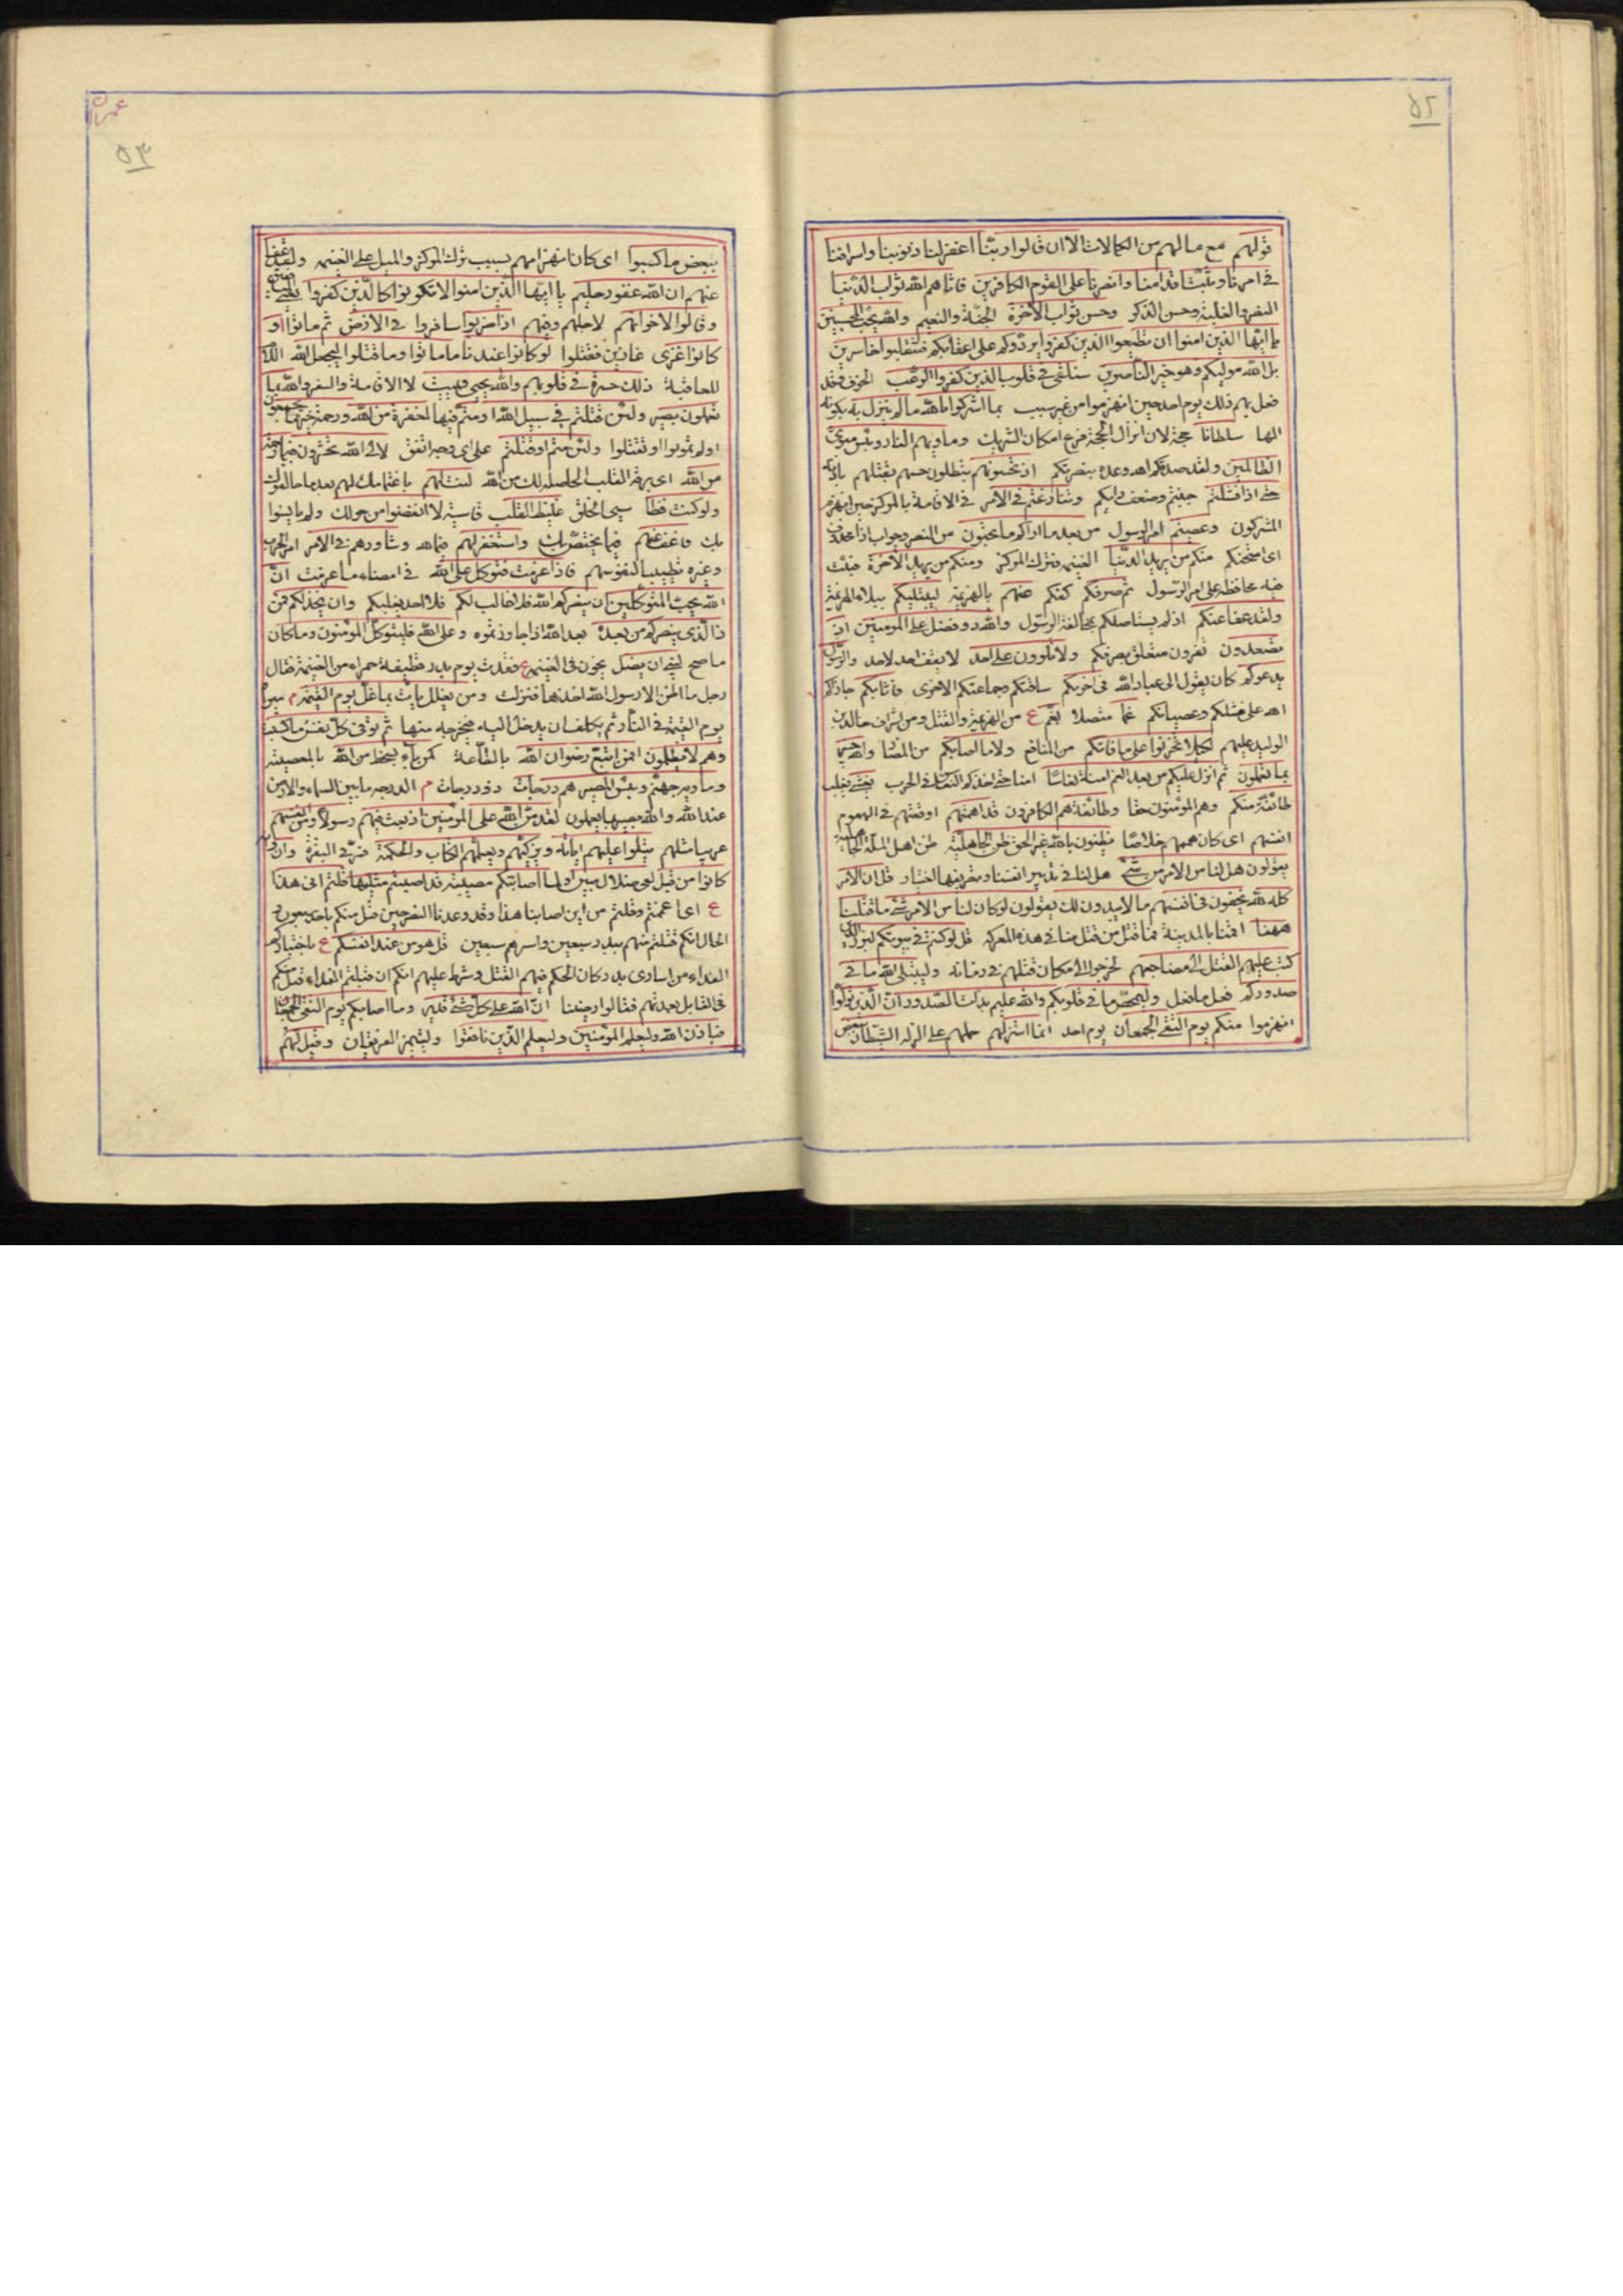 ٥٢
قولهم مع مالهم من الكمالات الا ان قالوا ربنا اغفر لنا ذنوبنا واسرافنا
في امرنا وثبت اقدامنا وانصرنا على القوم الكافرين فاتاهم الله ثواب الدنيا
النصر والغلبة وحسن الذكر وحسن ثواب الاخرة الجنة والنعيم والله يحب المحسنين
يا ايها الذين امنوا ان تطيعوا الذين كفروا يردوكم على اعقابكم فتنقلبوا خاسرين
بل الله موليكم وهو خير الناصرين سنلقى في قلوب الذين كفروا الرعب الخوف وقد
فعل بهم ذلك يوم احد حين انهزموا من غير سبب بما اشركوا بالله ما لم ينزل به
الها سلطانا حجة لان انزال الحجة فرع امكان الشريك وماويهم النار وبئس مثوى
الظالمين ولقد صدقكم الله وعده بنصرتكم اذ تحسونهم تبطلون حسهم بقتلهم باذنه
حتى اذا فشلتم جبنتم وضعف رايكم وتنازعتم في الامر في الاقامة بالمركز حين انهزم
المشركون وعصيتم امر الرسول من بعد ما اراكم ما تحبون من النصر وجواب اذا محذوف
اى امتحنكم منكم من يريد الدنيا الغنيمة فترك المركز ومنكم من يريد الاخرة فثبت
فيه محافظة على امر الرسول ثم صرفكم كفكم عنهم بالهزيمة ليبتليكم ببلاء الهزيمة
ولقد عفا عنكم اذ لم يستاصلكم بمخالفة الرسول والله ذو فضل على المومنين اذ
تصعدون تفرون متعلق بصرفكم ولا تلوون على احد لا يقف احد لاحد والرسول
يدعوكم كان يقول الى عباد الله في اخريكم ساقتكم وجماعتكم الاخرى فاثابكم جازاكم
الله على فشلكم وعصيانكم غما متصلا بغم ع من الهزيمة والقتل ومن اشراف خالد بن
الوليد عليهم لكيلا تحزنوا على ما فاتكم من المنافع ولا ما اصابكم من المضار والله خبير
بما تعملون ثم انزل عليكم من بعد الغم امنة نعاسا امنا حتى اخذكم النعاس في الحرب يغشى يغلب
طائفة منكم وهم المومنون حقا وطائفة هم الكافرون قد اهمتهم اوقعتهم في الهموم
انفسهم اى كان همهم خلاصا يظنون بالله غير الحق ظن الجاهلية ظن اهل الملة الجاهلية
يقولون هل لنا من الامر من شئ هل لنا في تدبير انفسنا وتصريفها اختيار قل ان الامر
كله لله يخفون في انفسهم ما لا يبدون لك يقولون لو كان لنا من الامر شئ ما قتلنا
ههنا اقمنا بالمدينة فما قتل من قتل منا في هذه المعركة قل لو كنتم في بيوتكم لبرز الذين
كتب عليهم القتل الى مضاجعهم لخرجوا الى مكان قتلهم في زمانه وليبتلى الله ما في
صدوركم فعل ما فعل وليمحص ما في قلوبكم والله عليم بذات الصدور ان الذين تولوا
انهزموا منكم يوم التقى الجمعان يوم احد انما استزلهم حملهم على الزلة الشيطان ببعض
عمران
٥٣
ببعض ما كسبوا اى كان انهزامهم بسبب ترك المركز والميل على الغنيمة ولقد عفا
عنهم ان الله غفور حليم يا ايها الذين امنوا لا تكونوا كالذين كفروا
وقالوا لاخوانهم لاجلهم وفيهم اذا ضربوا سافروا في الارض ثم ماتوا او
كانوا غزى غازين فقتلوا لو كانوا عندنا ما ماتوا وما قتلوا ليجعل الله
للعاقبة ذلك حسرة في قلوبهم والله يحيى ويميت لا الاقامة والسفر والله بما
تعملون بصير ولئن قتلتم في سبيل الله او متم فيها لمغفرة من الله ورحمة خير مما يجمعون
لو لم تموتوا او تقتلوا ولئن متم او قتلتم على اى وجه اتفق لالى الله تحشرون فبما رحمة
من الله اى برقة القلب الحاصلة لك من الله لنت لهم
ولو كنت فظا سيئ الخلق غليظ القلب قاسيه لا انفضوا من حولك ولم يانسوا
بك فاعف عنهم فيما يختص بك واستغفر لهم فيما لله وشاورهم في الامر امر الحرب
وغيره تطييبا لنفوسهم فاذا عزمت فتوكل على الله في امضاء ما عزمت ان
الله يحب المتوكلين ان ينصركم الله فلا غالب لكم فلا احد يغلبكم وان يخذلكم فمن
ذا الذى ينصركم من بعده بعد الله اذا جاوزتموه وعلى الله فليتوكل المومنون وما كان
ما صح لنبى ان يغل يخون في الغنيمة ع فقدت يوم بدر قطيفة حمراء من الغنيمة فقال
رجل ما اظن الا رسول الله اخذها فنزلت ومن يغلل يات بما غل يوم القيمة م
يوم القيمة في النار ثم يكلف ان يدخل اليه فيخرجه منها ثم توفى كل نفس ما كسبت
وهم لا يظلمون افمن اتبع رضوان الله بالطاعة كمن باء بسخط من الله بالمعصية
وماويه جهنم وبئس المصير هم درجات ذوو درجات م الدرجة ما بين السماء والارض
عند الله والله بصير بما يعملون لقد من الله على المومنين اذ بعث فيهم رسولا من انفسهم
عربيا مثلهم يتلوا عليهم اياته ويزكيهم ويعلمهم الكتاب والحكمة فسر في البقرة وان
كانوا من قبل لفى ضلال مبين اولما اصابتكم مصيبة قد اصبتم مثليها قلتم انى هذا
ع اى اغتممتم وقلتم من اين اصابنا هذا وقد وعدنا النصر حين قتل منكم باحد سبعون و
الحال انكم قتلتم منهم ببدر سبعين واسرتم سبعين قل هو من عند انفسكم ع باختياركم
الفداء من اسارى بدر وكان الحكم فيهم القتل وشرط عليهم انكم ان قبلتم الفداء قتل منكم
في القابل بعدتهم فقالوا رضينا ان الله على كل شئ قدير وما اصابكم يوم التقى الجمعان
فباذن الله وليعلم المومنين وليعلم الذين نافقوا وليتميز الفريقان وقيل لهم